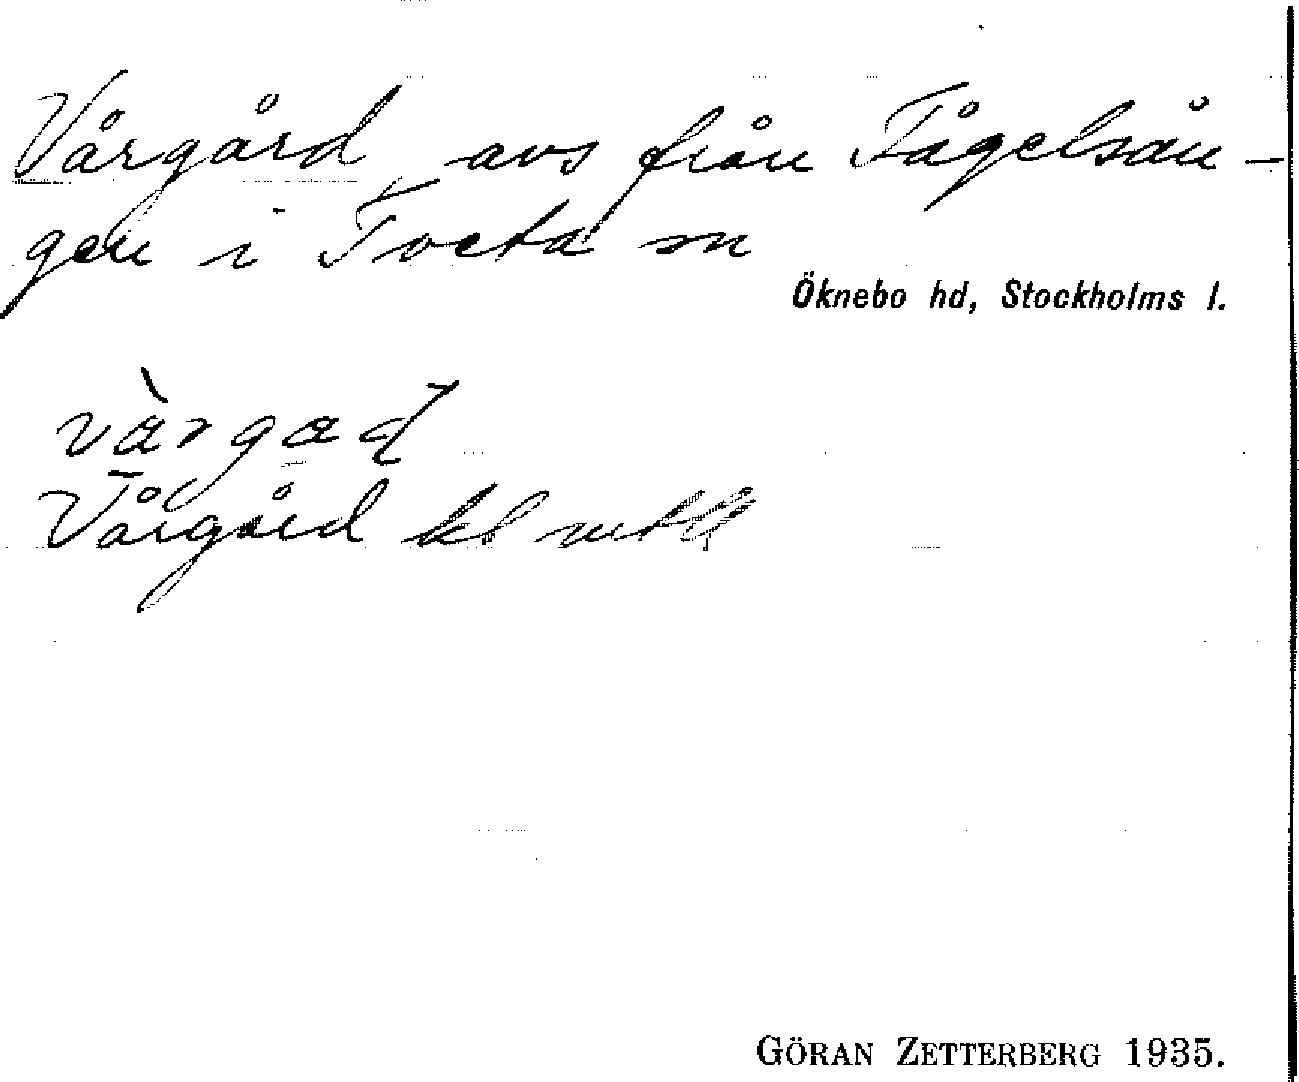 Vårgård avs från Fågelsån-
gen i Tveta sn
Öknebo hd, Stockholms l.
Vårgård kl
GÖRAN ZETTERBERG 1935.